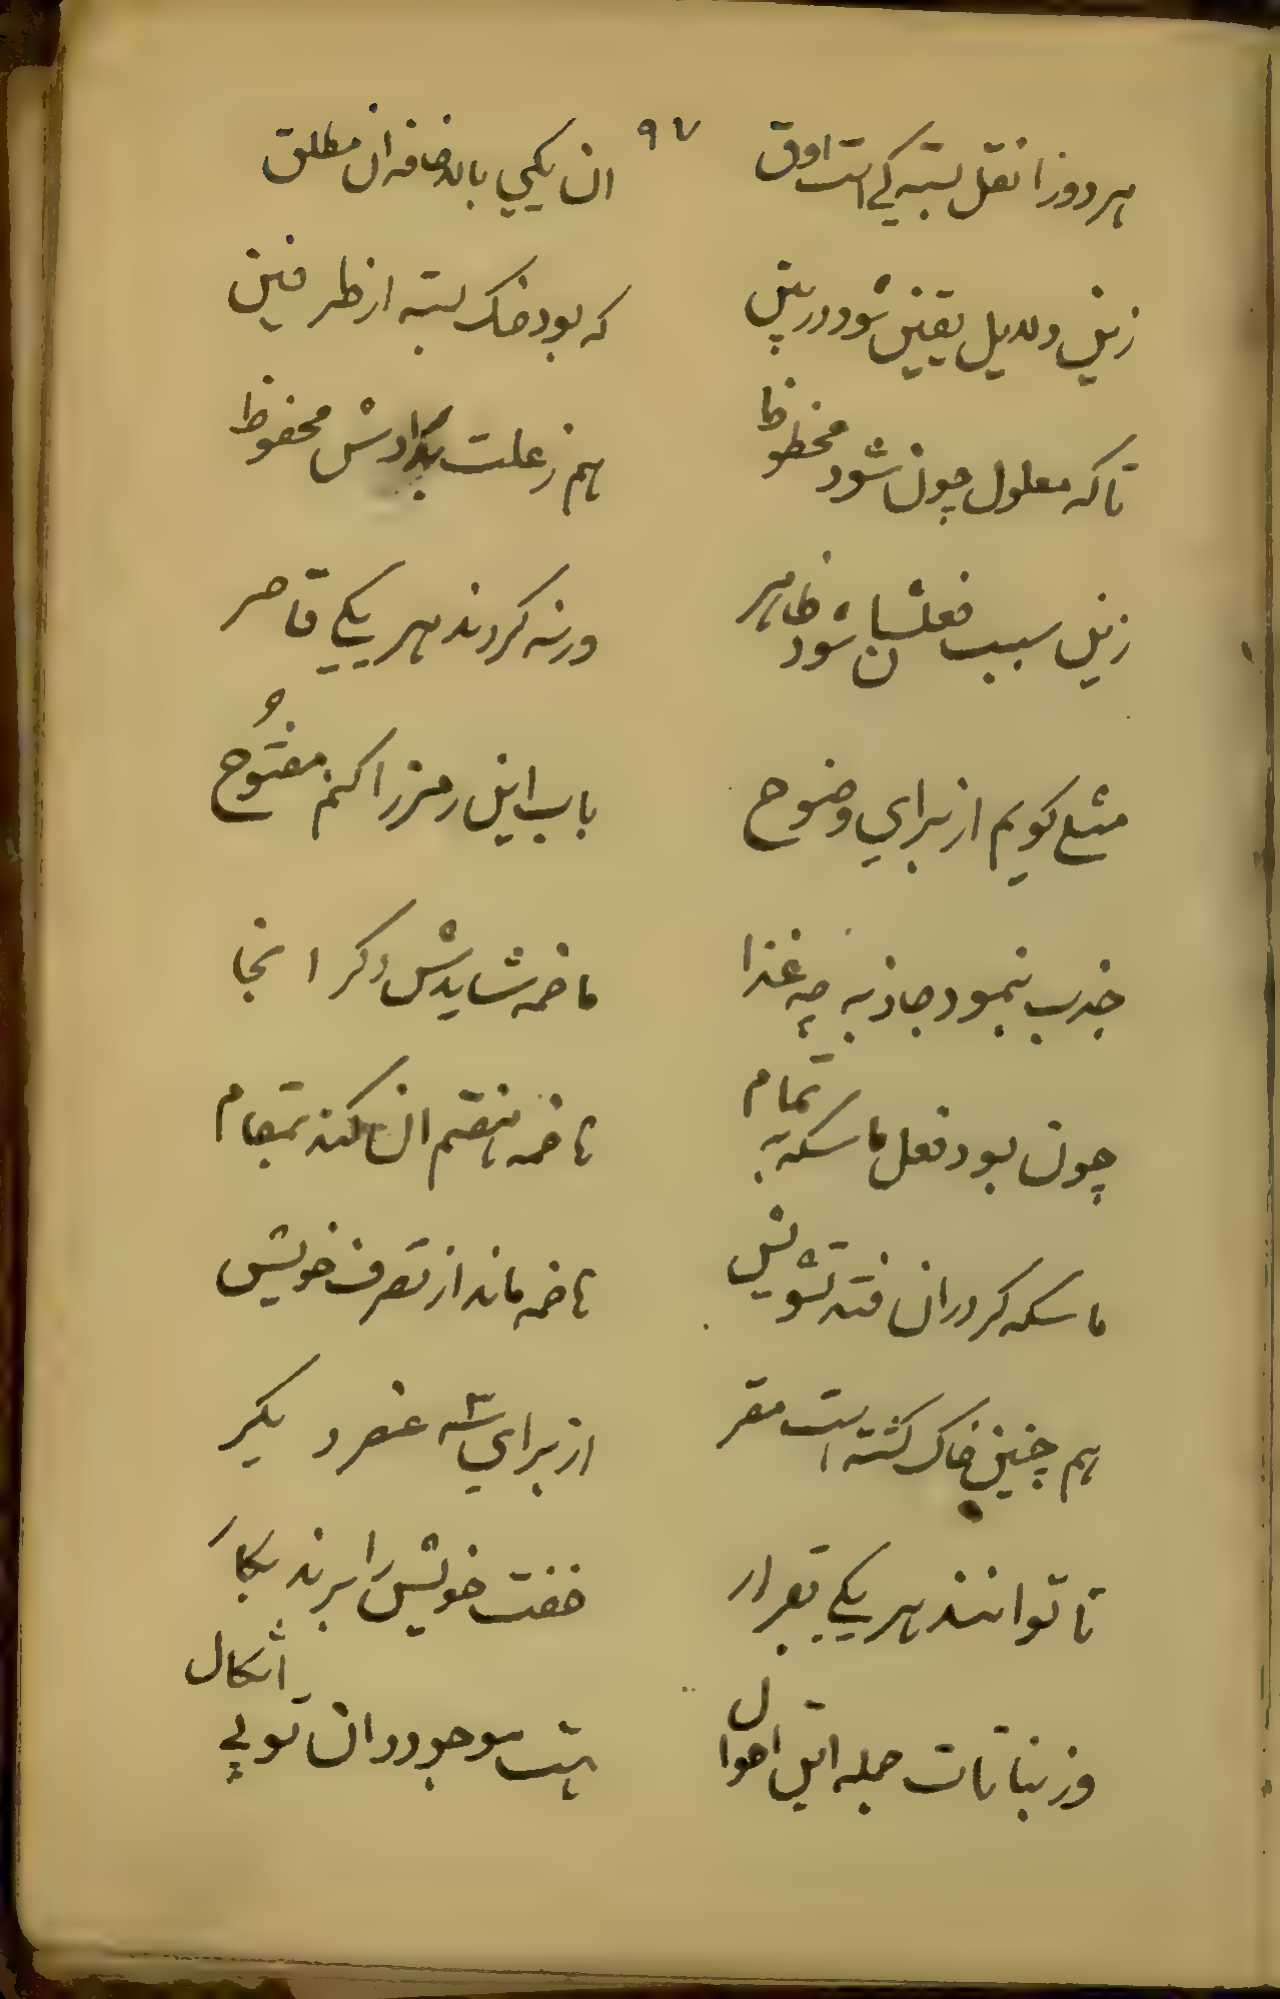 ۹۷
هر دو زا نقل بسته کی است اوق
ان یکی بالاضافه ان مطلق
زین دلایل یقین شود در پین
که بود خاک بسته از طرفین
تا که معلول چون شود محظوظ
هم ز علت بدادش محفوظ
زین سبب فعلشان شود ظاهر
ورنه کردند هر یکی قاصر
مثلا کویم از برای وضوح
باب این رمز را کنم مفتوح
جذب بنمود جاذبه چه غذا
هاضمه شایدش دکر انجا
چون بود فعل ماسکه به تمام
هاضمه هضم ان کند بمقام
ماسکه کر دران فتد تشویش
هاضمه ماند از تصرف خویش
هم چنین خاک کشته است مقر
از برای سه عنصر دیکر
تا توانند هر یکی بقرار
خفت خویش را برند بکار
وز نباتات جمله این احوال
هست موجود دران تو بی اشکال